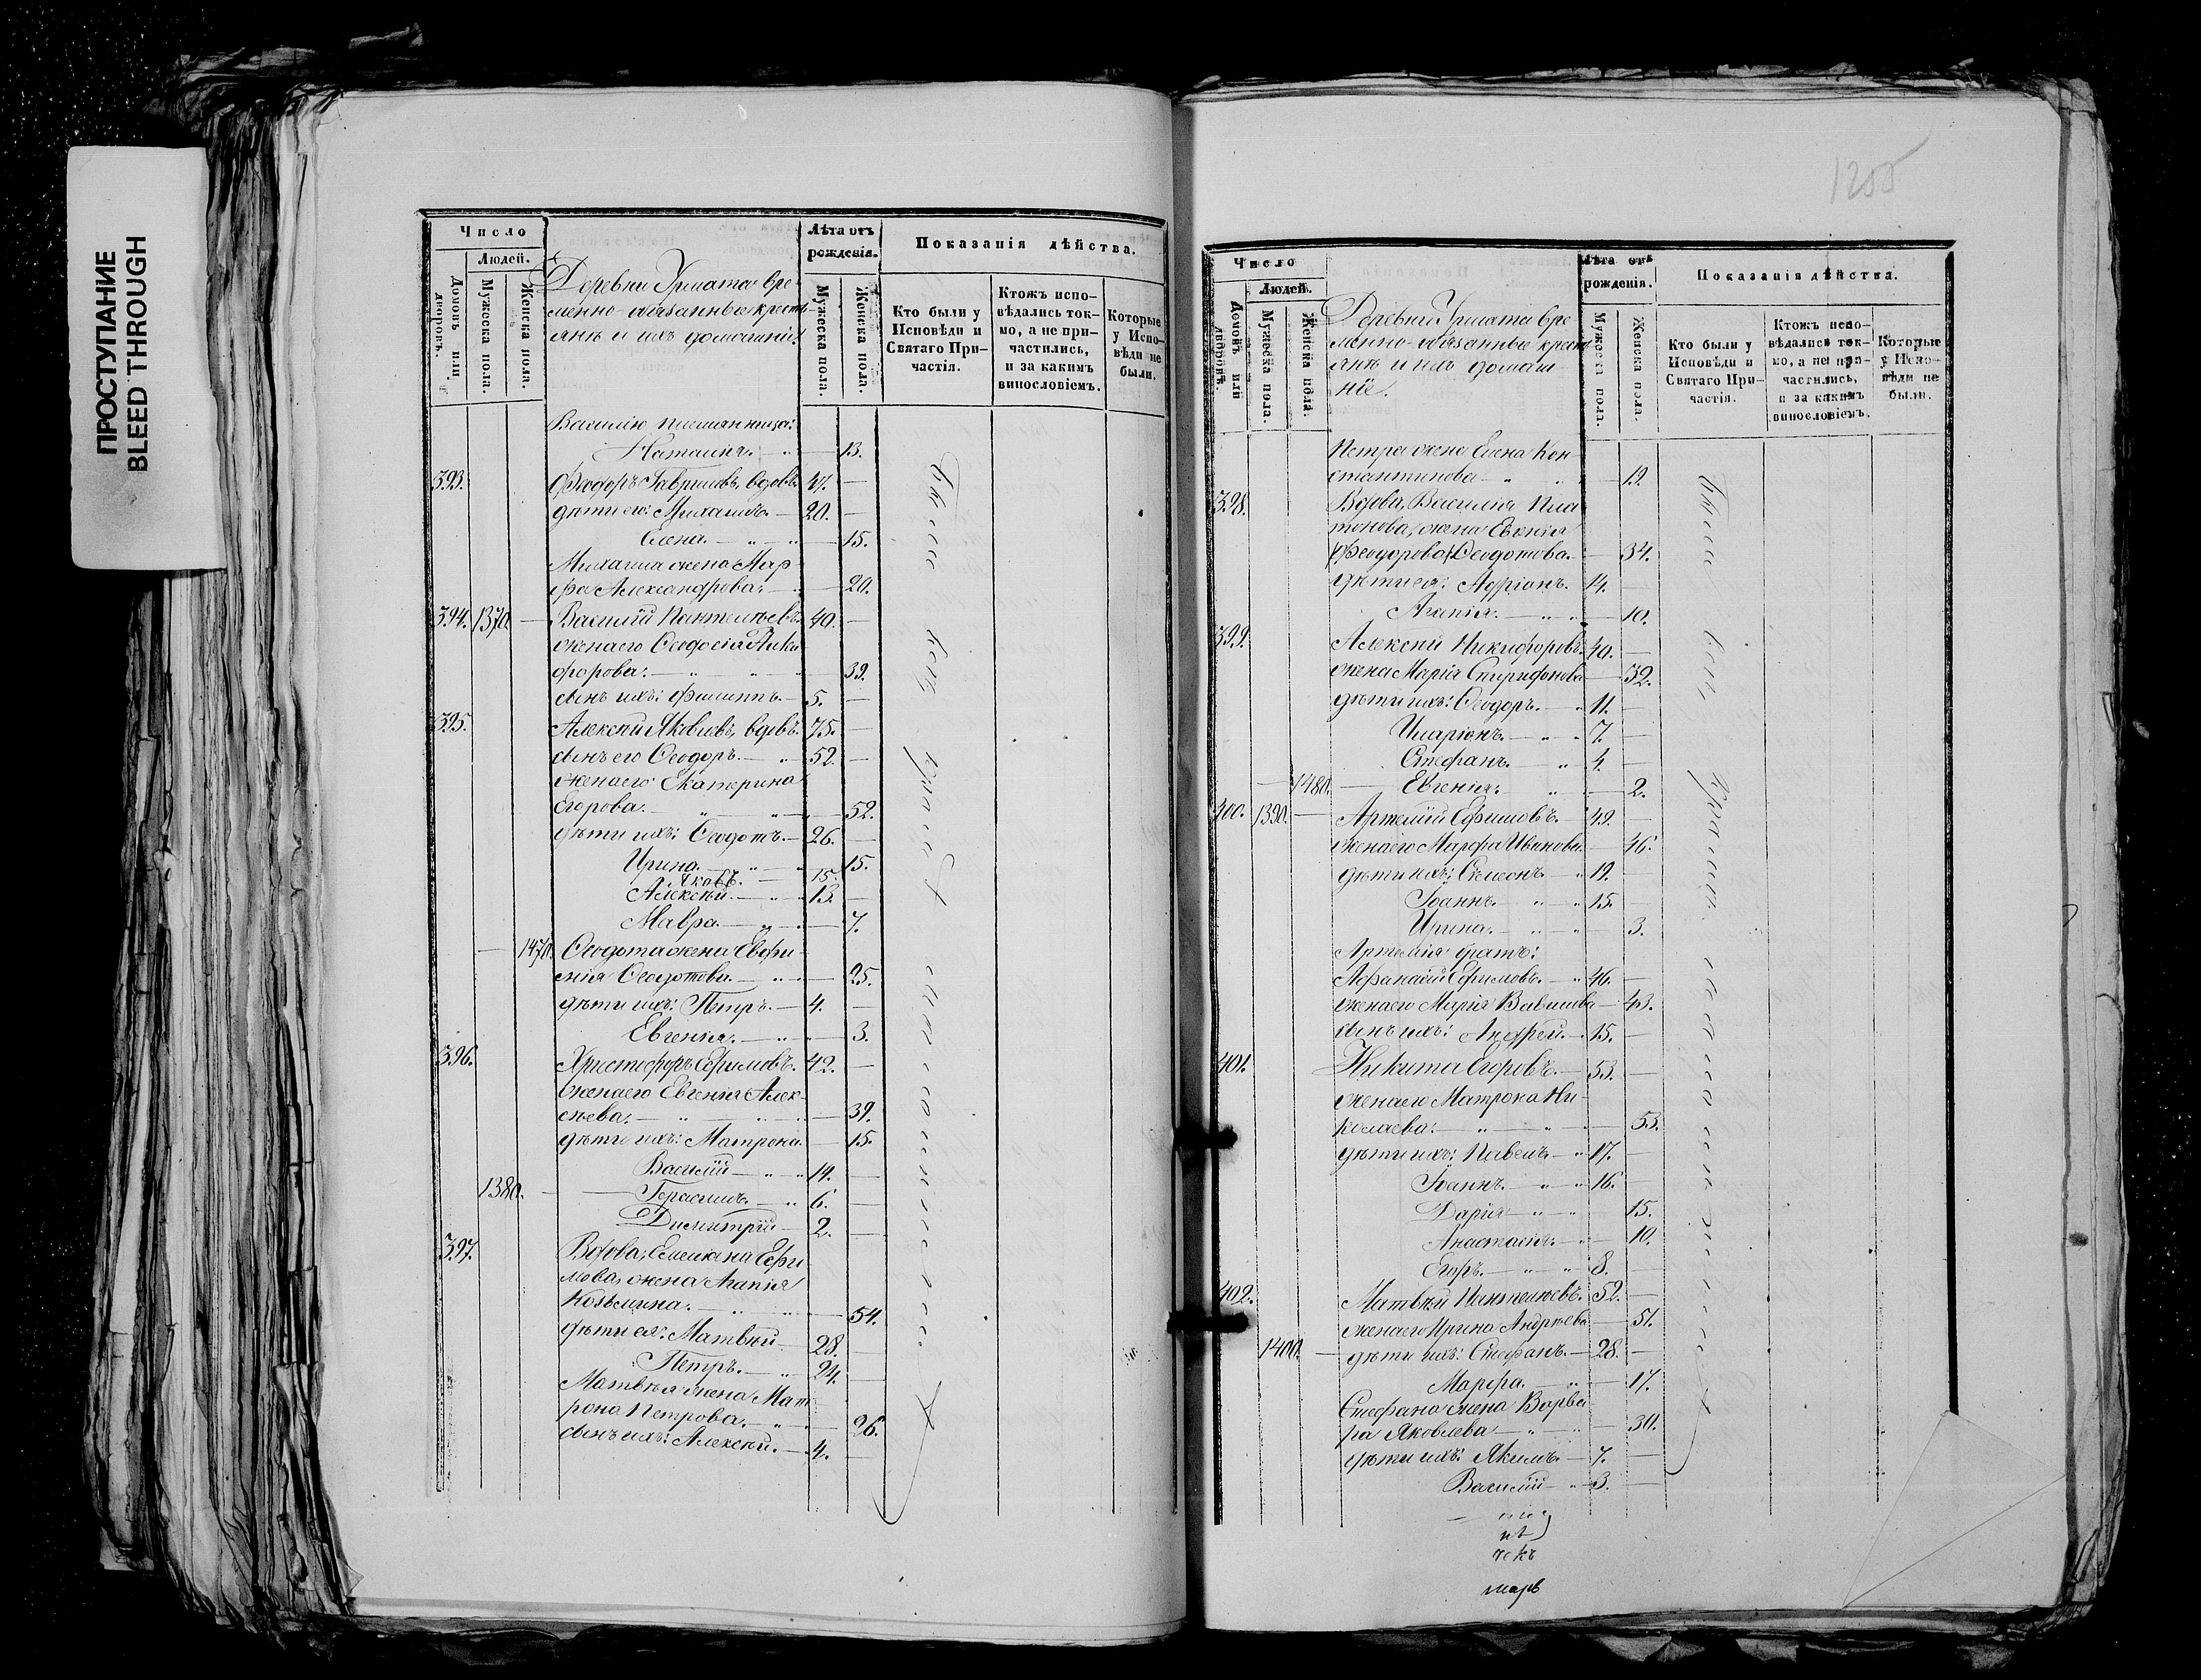 ПРОСТУПАНИЕ
BLEED THROUGH
Число
Людей.
Домовъ или дворовъ.
Мужеска пола.
Женска пола.
Деревни Урмата вре-
менно-обязанные кресть-
янѣ и ихъ домашніе
Лѣта отъ рожденія.
Мужеска пола.
Женска пола.
Показанія дѣйства.
Кто были у Исповѣди и Святаго При-частія.
Ктожъ испо-вѣдались ток-мо, а не при-частились, и за какимъ винословіемъ.
Которые у Испо-вѣди не были.
Василію племянница:
Наталія. 13.
393. Ѳеодоръ Гавриловъ, вдовъ 47. —
дѣти его: Михаилъ. — 20. —
Елена. — 15.
Михаила жена Мар
ѳа Александрова: — 20.
394. 1370. — Василій Пантелѣевъ. 40. —
жена его Ѳеодосія Ники
форова: — 39.
сынъ ихъ: Филиппъ. — 5. —
395. Алексѣй Яковлевъ, вдовъ. 75. —
сынъ его Ѳеодоръ. — 52. —
жена его Екатерина
Егорова. — 52.
дѣти ихъ: Ѳеодотъ. — 26. —
Ирина. — 15.
Яковъ. — 15.
Алексѣй. — 13. —
Мавра. — 7.
— 1470. Ѳеодота жена Евфи-
мія Ѳеодотова. — 25.
дѣти ихъ: Петръ. — 4. —
Евгенія. — 3.
396. Христофоръ Ефимовъ. 42. —
жена его Евгенія Алек-
сѣева. — 39.
дѣти ихъ: Матрона. — 15.
Василій — 14. —
1380. — Герасимъ. — 6. —
Димитрій — 2. —
397. Вдова, Емельяна Ефи
мова, жена Агапія
Козьмина. — 54.
дѣти ея: Матвѣй — 28. —
Петръ. — 24. —
Матвѣя жена Мат
рона Петрова. — 26.
сынъ ихъ: Алексѣй. — 4. —
Были
1205
Число
Людей.
Домовъ или дворовъ.
Мужеска пола.
Женска пола.
Деревни Урмата вре
менно-обязанные кресть
янѣ и ихъ домаш
ніе.
Лѣта отъ рожденія.
Мужеска пола.
Женска пола.
Показанія дѣйства.
Кто были у Исповѣди и Святаго При-частія.
Ктожъ испо-вѣдались ток-мо, а не при-частились, и за какимъ винословіемъ.
Которые у Испо-вѣди не были.
Петра жена Елена Кон
стантинова —
398. Вдова, Василія Пла
тонова, жена Евгенія
Ѳеодорова — 34.
дѣти ея: Адріанъ. 14. —
Агапія. — 10.
399. Алексѣй Никифоровъ. 40. —
жена Марія Спиридонова — 32.
дѣти ихъ: Ѳеодоръ. — 11. —
Иларіонъ. — 7. —
Стефанъ. — 4. —
— 1480. — Евгенія. — 2.
400. 1390. — Артемій Ефимовъ. — 49. —
жена его Марѳа Иванова. — 46.
дѣти ихъ: Симеонъ. — 19. —
Іоаннъ. — 15. —
Ирина. — 3.
Артемія братъ:
Аѳанасій Ефимовъ. — 46. —
жена его Марія Вавилова — 43.
сынъ ихъ: Андрей. — 15. —
401. Никита Егоровъ. — 53. —
жена его Матрона Ни-
колаева: — 53.
дѣти ихъ: Павелъ — 17. —
Іоаннъ. — 16. —
Дарія — 15.
Анастасія. — 10.
Егоръ. — 8. —
402. Матвѣй Пантелѣевъ. 52. —
жена его Ирина Андрѣева — 51.
1400. — дѣти ихъ: Стефанъ. — 28. —
Марѳа. — 17.
Стефана жена Варва
ра Яковлева — 30.
дѣти ихъ: Якимъ. — 7. —
Василій — 3. —
Были